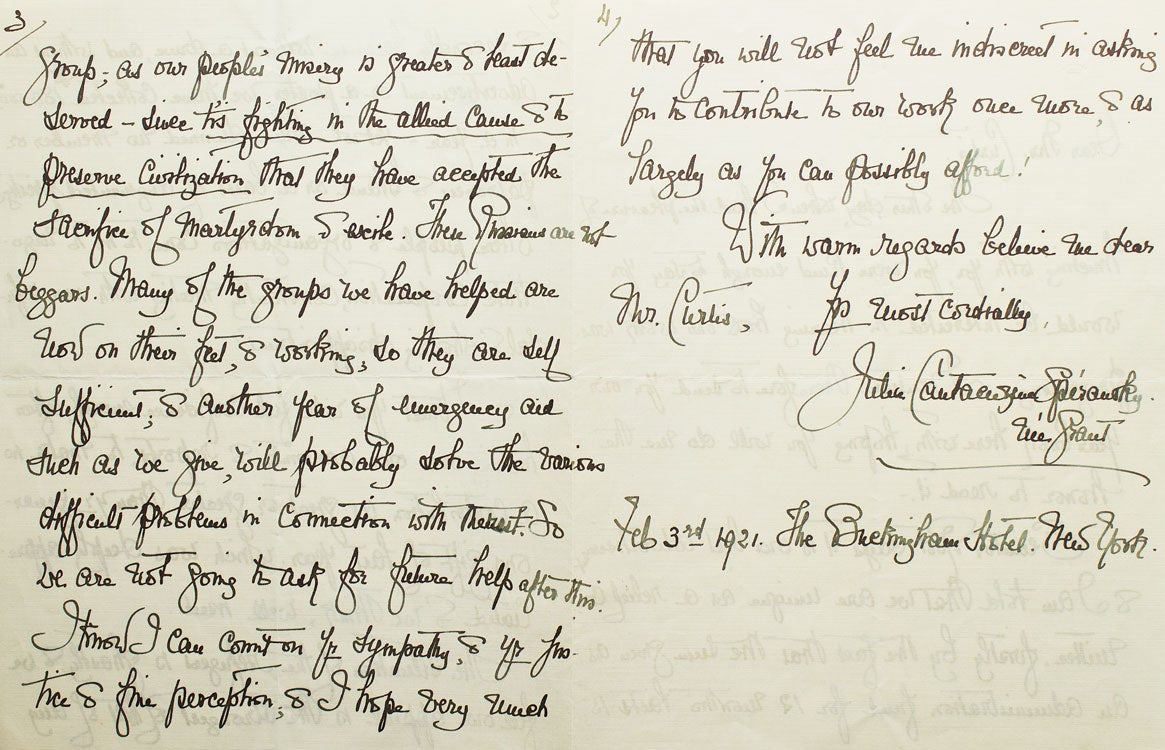 3
group; as our people's misery is greater & least de-
served – since tis fighting in the allied cause & to
preserve civilization that they have accepted the
sacrifice of Martyrdom & exile. These Russians are not
beggars. Many of the groups we have helped are
now on their feet, & working, so they are self
sufficient; & another year of emergency aid
such as we give, will probably solve the various
difficult problems in connection with the rest. So
we are not going to ask for future help after this.
I know I can count on yr sympathy, & yr jus-
tice & fine perception, & I hope very much
4)
that you will not feel me indiscreet in asking
you to contribute to our work once more, & as
largely as you can possibly afford!
With warm regards believe me dear
Mr. Curtis, Yrs most cordially,
Julia Cantacuzène Spéransky.
née Grant
Feb 3rd 1921. The Buckingham Hotel. New York.